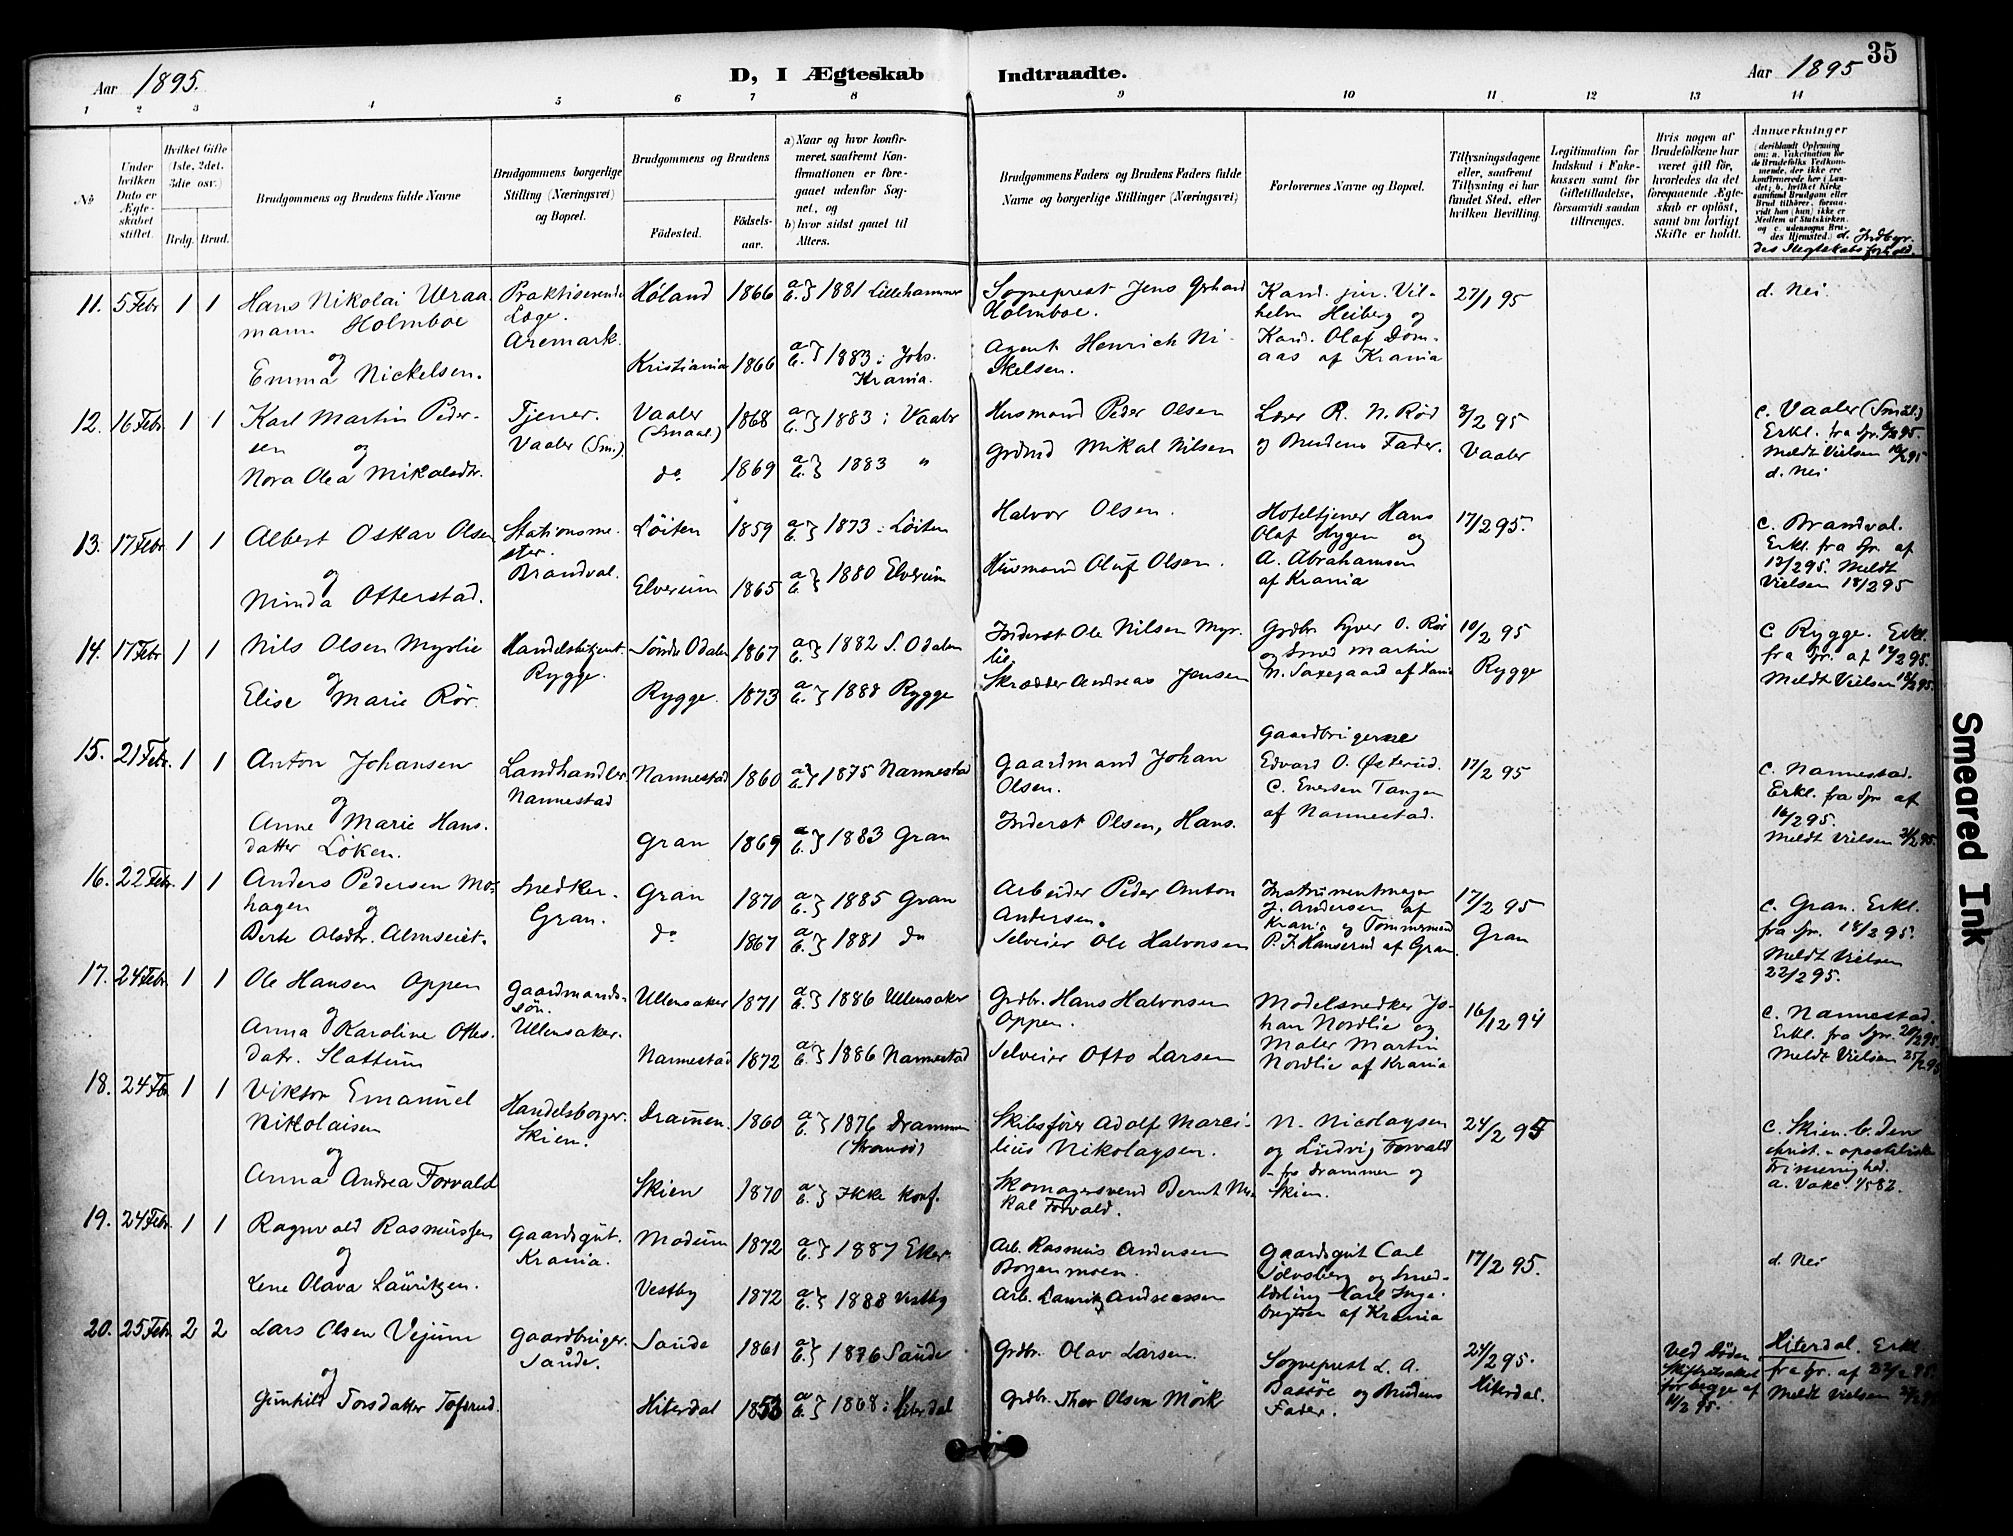 35
Aar 1895.
D, I Ægteskab Indtraadte.
Aar 1895
1 2 3 4 5 6 7 8 9 10 11 12 13 14
No
Under hvilken Dato er Ægteskabet stiftet.
Hvilket Gifte (1ste, 2det, 3die osv.)
Brdg. Brud.
Brudgommens og Brudens fulde Navne
Brudgommens borgerlige Stilling (Næringsvei) og Bopæl.
Brudgommens og Brudens
Födested.
Födselsaar.
a) Naar og hvor konfirmeret, saafremt Konfirmationen er foregaaet udenför Sognet, og
b) hvor sidst gaaet til Alters.
Brudgommens Faders og Brudens Faders fulde Navne og borgerlige Stillinger (Næringsvei)
Forlovernes Navne og Bopæl.
Tillysningsdagene eller, saafremt Tillysning ei har fundet Sted, efter hvilken Bevilling.
Legitimation for Indskud i Enkekassen samt for Giftetilladelse, forsaavidt saadan tiltrænges.
Hvis nogen af Brudefolkene har været gift för, hvorledes da det foregaaende Ægteskab er oplöst, samt om lovligt Skifte er holdt.
Anmærkninger (deriblandt Oplysning om: a. Vakcination for de Brudefolks Vedkommende, der ikke ere konfirmerede her i Landet; b. hvilket Kirkesamfund Brudgom eller Brud tilhörer, forsaavidt han (hun) ikke er Medlem af Statskirken, og c. udensogns Brudes Hjemsted.) d. Indbyrdes Slegtskabsforhold.
11. 5 Febr 1 1 Hans Nikolai Wraamann Holmboe
og
Emma Nickelsen.
Praktiserende Læge.
Aremark.
Høland 1866 a. b. } 1881 Lillehammer
Kristiania 1866 a. b. } 1883 i Johs. Krania.
Sogneprest Jens Gerhard Holmboe.
Agent Henrich Nikelsen.
Kand. jur. Vilhelm Heiberg og
Kand. Olaf Domaas af Krania
27/1 95
d. Nei.
12. 16 Febr 1 1 Karl Martin Pedersen
og
Nora Olea Mikalsdtr.
Tjener.
Vaaler (Sm.)
Vaaler (Smaal.) 1868 a. b. } 1883 i Vaaler
do 1869 a. b. } 1883 "
Husmand Peder Olsen
Grdmd Mikal Nilsen
Lærer R. N. Rød
og Brudens Fader.
3/2 95
Vaaler
c. Vaaler (Smål.)
Erkl. fra Spr. 95.
Meldt Vielsen 18/2 95
d. Nei
13. 17 Febr 1 1 Albert Oskar Olsen
og
Ninda Otterstad.
Stationsmester.
Brandval.
Løiten 1859 a. b. } 1873 i Løiten
Elverum 1865 a. b. } 1880 Elverum
Halvor Olsen.
Husmand Oluf Olsen.
Hoteltjener Hans Olaf Hygen og
A. Abrahamsen af Krania
17/2 95.
c. Brandval.
Erkl. fra Spr. af
13/2 95. Meldt
Vielsen 18/2 95
14. 17 Febr 1 1 Nils Olsen Myrlie
og
Elise Marie Rör.
Handelsbetjent.
Rygge.
Söndr Odalen 1867 a. b. } 1882 S. Odalen
Rygge. 1873 a. b. } 1888 Rygge
Inderst Ole Nilsen Myrlie
Skrædder Andreas Jensen
Grdbr. Syver O. Rör
og Smed Martin
N. Saxegaard af Krania
10/2 95
Rygge
c. Rygge. Erkl.
fra Spr. af 12/2 95.
Meldt Vielsen 18/2 95.
15. 21 Febr. 1 1 Anton Johansen
og
Anne Marie Hansdatter Löken.
Landhandler
Nannestad
Nannestad 1860 a. b. } 1875 Nannestad
Gran 1869 a. b. } 1883 Gran
Gaardmand Johan Olsen.
Inderst Olsen, Hans.
Gaardbrugerne
Edvard O. Østerud.
C. Enersen Tangen
af Nannestad.
17/2 95
c. Nannestad.
Erkl. fra Spr. af
18/2 95.
Meldt Vielsen 21/2 95.
16. 22 Febr. 1 1 Anders Pedersen Mohagen
og
Berte Olsdtr. Almseiet.
Snedker.
Gran.
Gran 1870 a. b. } 1885 Gran
do 1867 a. b. } 1881 do
Arbeider Peder Anton Andersen.
Selveier Ole Halvorsen
Instrumentmager
J. Andersen af
Krania og Tömmermand
P. J. Hanserud af Gran.
17/2 95
Gran
c. Gran. Erkl.
fra Spr. 18/2 95.
Meldt Vielsen
22/2 95.
17. 24 Febr. 1 1 Ole Hansen Oppen
og
Anna Karoline Ottesdatr. Slattum
Gaardmandssön.
Ullensaker.
Ullensaker 1871 a. b. } 1886 Ullensaker
Nannestad 1872 a. b. } 1886 Nannestad
Grdbr. Hans Halvorsen Oppen.
Selveier Otto Larsen
Modelsnedker Johan Nordlie og
Maler Martin
Nordlie af Krania
16/12 94
c. Nannestad.
Erkl. fra Spr. 20/2 95.
Meldt Vielsen 25/2 95
18. 24 Feb 1 1 Viktor Emanuel Nikolaisen
og
Anna Andrea Forvald
Handelsborger.
Skien.
Drammen. 1860 a. b. } 1876 Drammen (Strömsö)
Skien 1870 a. b. } Ikke konf.
Skibsförer Adolf Marcilius Nikolaysen.
Skomagersvend Bernt Mikal Forvald.
N. Nicolaysen
og Ludvig Forvald
fra Drammen og
Skien.
24/2 95
c. Skien. b. Den
christ.-apostoliske
Frimenighed.
a. Vakc. 1582.
19. 24 Febr. 1 1 Ragnvald Rasmussen
og
Lene Olava Lauritzen.
Gaardsgut.
Krania.
Modum 1872 a. b. } 1887 Eker
Vestby 1872 a. b. } 1888 Vestby
Arb. Rasmus Andersen Borgenmoen.
Arb. Lauritz Andreassen
Gaardsgut Carl
Sölvsberg og Smedlærling Karl Ingebrigtsen af Krania
17/2 95.
d. Nei
20. 25 Febr. 2 2 Lars Olsen Vejum
og
Gunhild Torsdatter Tofsrud.
Gaardbruger.
Saude.
Saude 1861 a. b. } 1876 Saude
Hiterdal 1853 a. b. } 1868 i Hiterdal
Grdbr. Olav Larsen.
Grdbr. Thor Olsen Mörk
Sogneprest L. A.
Bassöe og Brudens
Fader.
24/2 95.
Hiterdal.
Ved Döden
Skifteattest
för begge af
11/2 95.
Hiterdal. Erkl.
fra Spr. af 22/2 95.
Meldt Vielsen
Smeared Ink